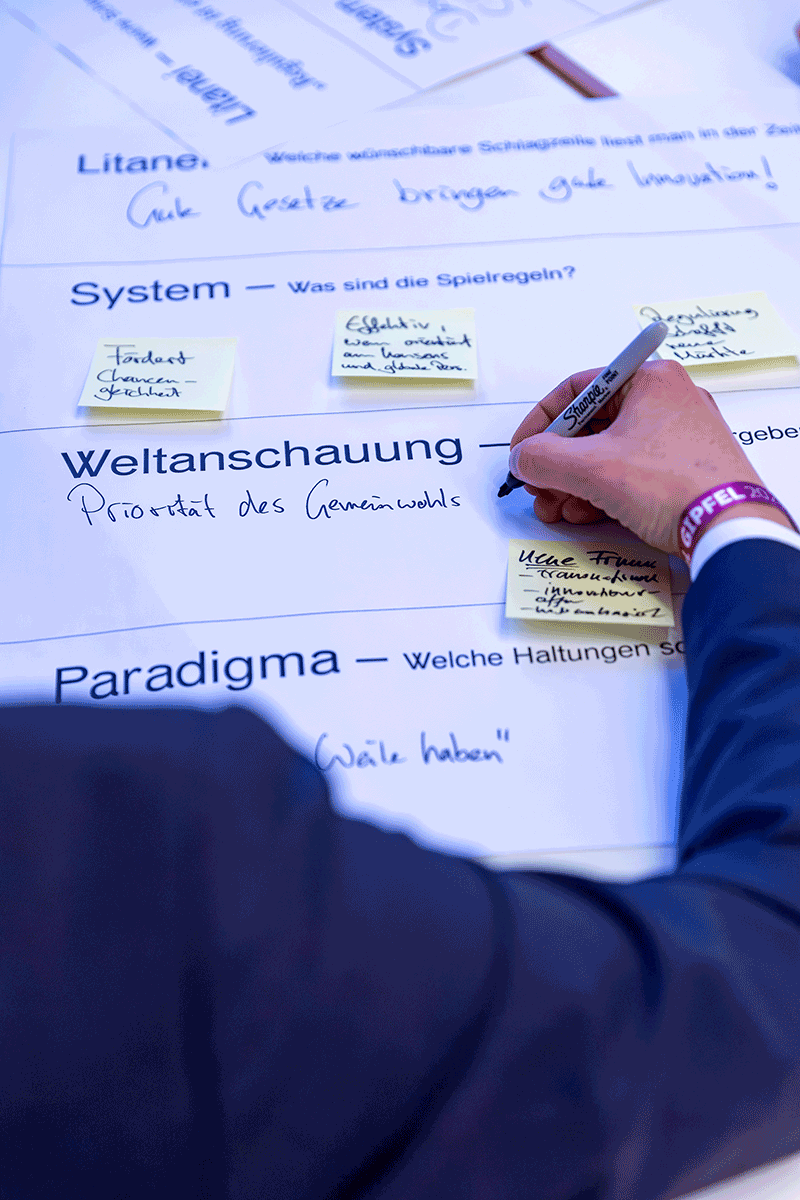 System
"Regulierung
Litanei –
Litanei
Welche wünschbare Schlagzeile liest man in der Zei
Gute Gesetze bringen gute Innovation!
System — Was sind die Spielregeln?
Fördert
Chancen–
gleichheit
Effektiv,
wenn orientiert
am Konsens
und globale Pers.
Regulierung
schafft
neue
Märkte
Sharpie
FINE POINT
Weltanschauung —
rgebe
Priorität des Gemeinwohls
GIPFEL 20
Neue
– innovations-
affin
Paradigma — Welche Haltungen
Weile haben"